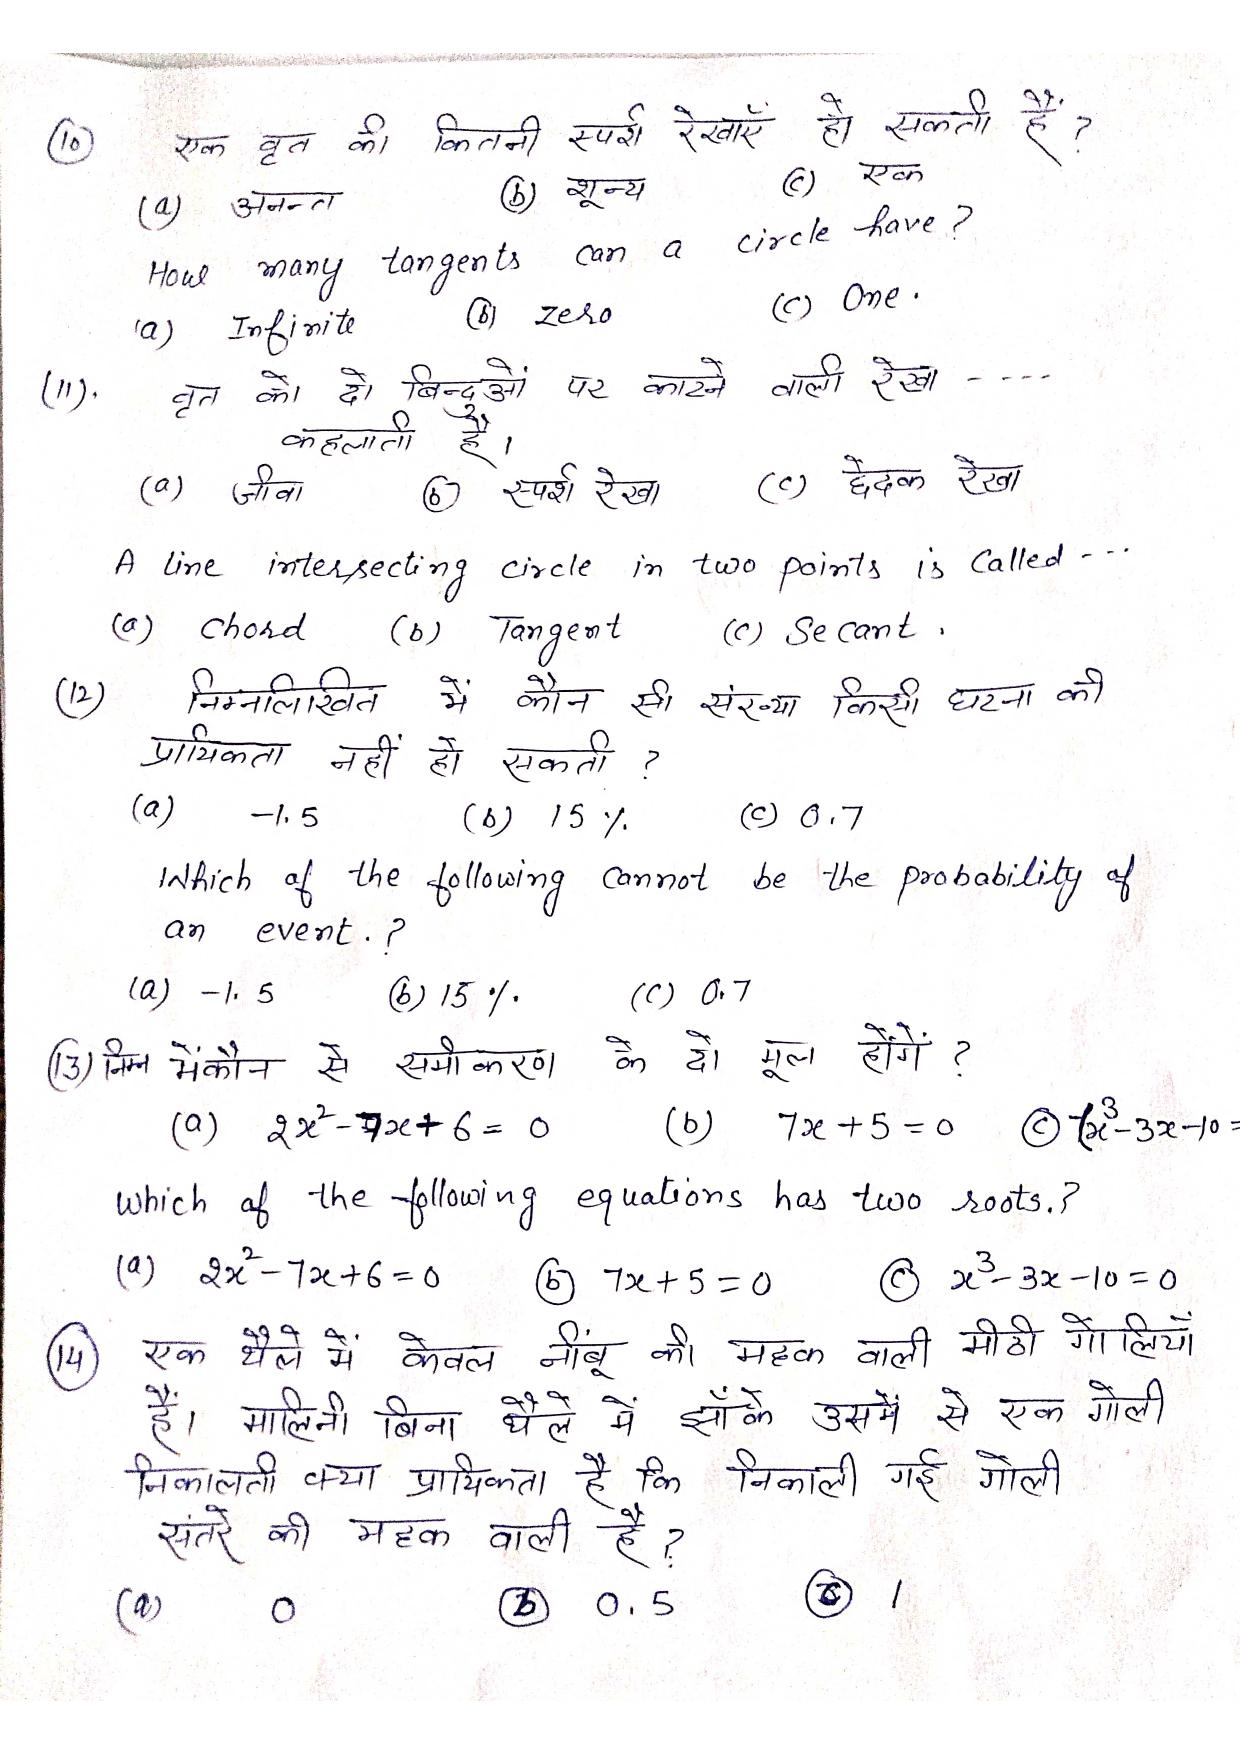 (10) एक वृत की कितनी स्पर्श रेखाएँ हो सकती हैं ?
(a) अनन्त (b) शून्य (c) एक
How many tangents can a circle have ?
(a) Infinite (b) zero (c) One .
(11). वृत को दो बिन्दुओं पर काटने वाली रेखा - - - - -
कहलाती है ।
(a) जीवा (b) स्पर्श रेखा (c) छेदक रेखा
A line intersecting circle in two points is Called - - - -
(a) chord (b) Tangent (c) Secant .
(12) निम्नलिखित में कौन सी संख्या किसी घटना की
प्रायिकता नहीं हो सकती ?
(a) -1.5 (b) 15 % (c) 0.7
Which of the following cannot be the probability of
an event . ?
(a) -1.5 (b) 15 % (c) 0.7
(13) निम्न में कौन से समीकरण के दो मूल होंगें ?
(a) 2x² - 7x + 6 = 0 (b) 7x + 5 = 0 (c) x³ - 3x - 10 =
which of the following equations has two roots. ?
(a) 2x² - 7x + 6 = 0 (b) 7x + 5 = 0 (c) x³ - 3x - 10 = 0
(14) एक थैले में केवल नींबू की महक वाली मीठी गोलियाँ
हैं । मालिनी बिना थैले में झाँके उसमें से एक गोली
निकालती क्या प्रायिकता है कि निकाली गई गोली
संतरे की महक वाली है ?
(a) 0 (b) 0.5 (c) 1